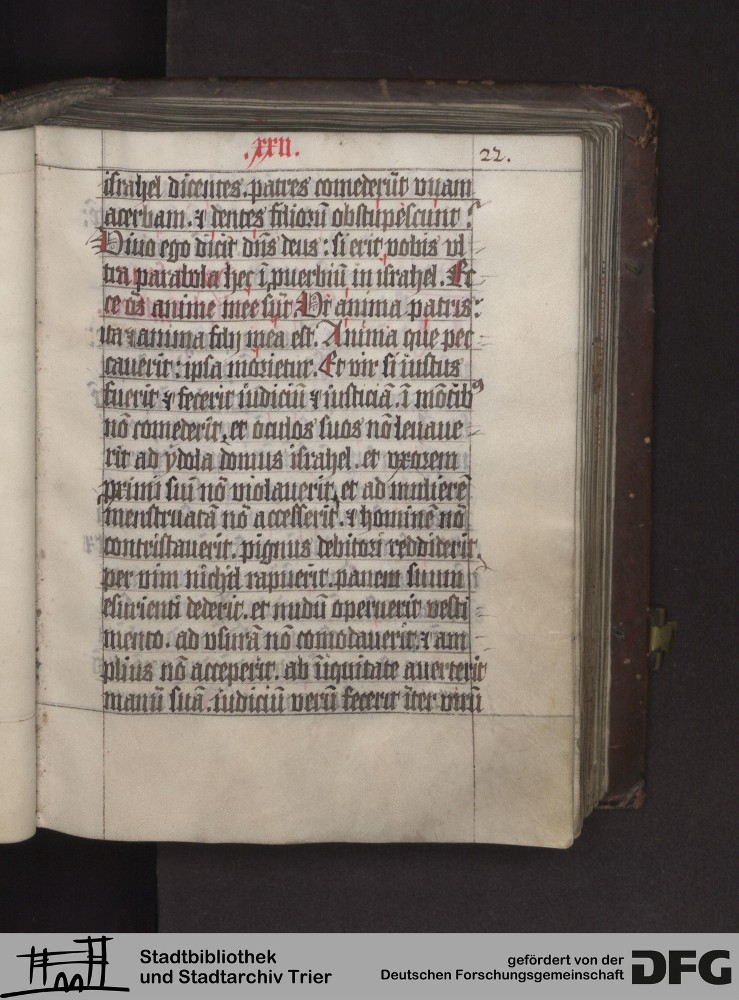 .xxii.
22.
israhel dicentes. patres comederūt vuam
acerbam. ⁊ dentes filioꝝ obstupescunt?
Viuo ego dicit dn̄s deus: si erit vobis vl
tra parabola hec ī ꝓuerbiū in israhel. Ec
ce oēs anime mee sūt. Vt anima patris:
ita ⁊ anima filij mea est. Anima que pec
cauerit: ipsa morietur. Et vir si iustus
fuerit ⁊ fecerit iudiciū ⁊ iusticiā. ī mōtibꝰ
nō comederit, et oculos suos nō leuaue
rit ad ydola domus israhel. et vxorem
primi sui nō violauerit, et ad mulierē
menstruatā nō accesserit. ⁊ hominē nō
contristauerit. pignus debitori reddiderit.
per vim nichil rapuerit. panem suum
esurienti dederit. et nudū operuerit vesti
mento. ad vsurā nō comodauerit. ⁊ am
plius nō acceperit. ab īiquitate auerterit
manū suā. iudiciū verū fecerit īter virū
Stadtbibliothek
und Stadtarchiv Trier
gefördert von der
Deutschen Forschungsgemeinschaft
DFG